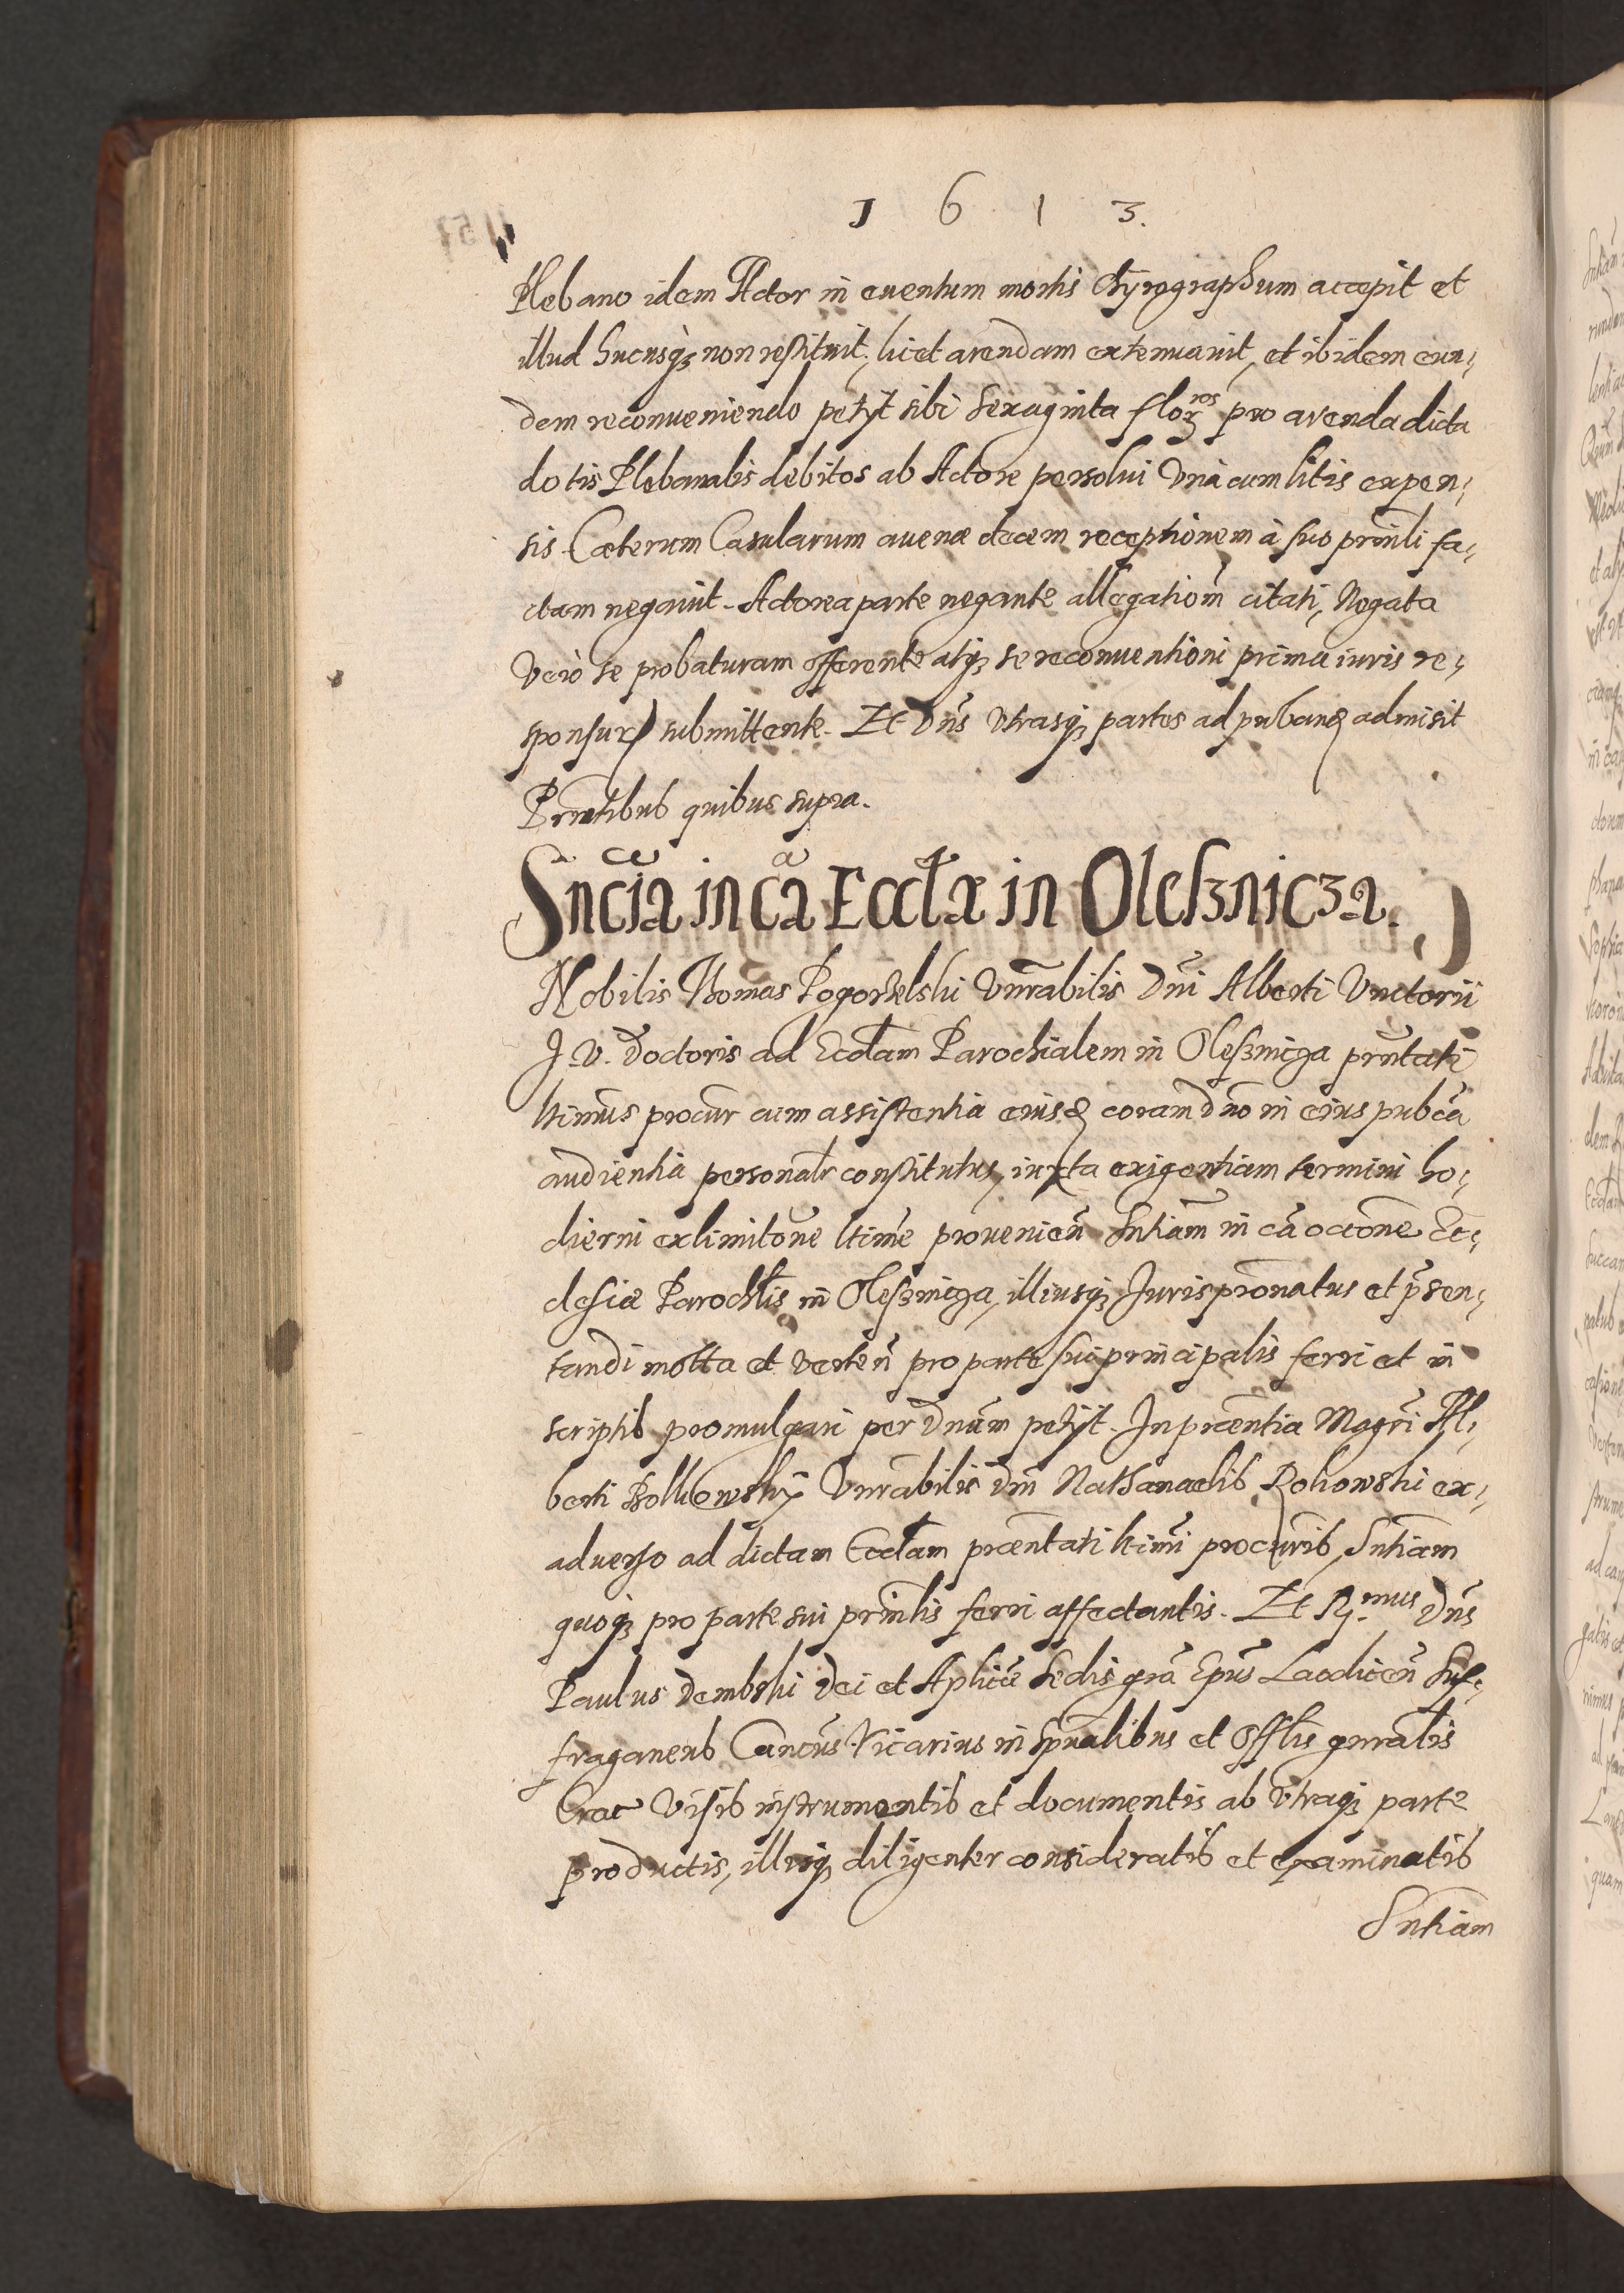 1 6 1 3.
Plebano idem Actor in euentum mortis Chyrographum accepit et
illud hucusq; non restituit, licet arendam extenuauit, et ibidem eun,
dem reconueniendo petyt sibi sexaginta flor ros pro arenda dicta
dotis Plebanalis debitos ab Actore persolui Vnà cum litis expen,
sis. Cæterum Casularum auenæ decem receptionem à suo prīnli fa,
ctam negauit. Actorea parte negante allegatiom̄ citati, Negata
Verò se probaturam offerente atq; se reconuentioni prima iuris re,
sponsur submittente. Et Dn̄s Vtrasq; partes ad puband admisit
Prn̄tibus quibus supra.
Snc̄ia in cā Eccl̄æ in Olesznicza.
Nobilis Thomas Pogorzelski Vnr̄abilis Dn̄i Alberti Vnctorii
J. V. Doctoris ad Eccl̄am Parochialem in Olesznicza prn̄tati
ltimūs procur cum assistentia eiusd coram Dn̄o in eius pubc̄a
audientia personalr̄ constitutus, iuxta exigentiam termini ho,
dierni ex limitōne ltimē prouenien̄ Sn̄tiam in cā occōne Ec,
clesiæ Paroch̄lis in Olesznicza, illiusq; Jurispr̄onatus et p̄sen,
tandi motta et verten̄ pro parte sui principalis ferri et in
scriptis promulgari per Dn̄um petyt. In præn̄tia Magr̄i Al,
berti Vnr̄abilis Dn̄i Nathanaelis Rohowski ex,
aduerso ad dictam Eccl̄am præn̄tati ltimī procuris, Sn̄tiam
quoq; pro parte sui prīnlis ferri affectantis. Et R. mus Dn̄s
Paulus Dembski Dei et Aplicæ Sedis grā Epūs Laodicen̄ Suf,
fraganeus Cancūs Vicarius in Spūalibus et Offl̄is gnr̄alis
Crac Visis instrumentis et documentis ab Vtraq; parte
productis, illisq; diligenter consideratis et examinatis
Sn̄tiam